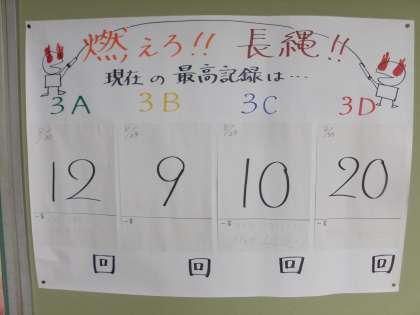 燃えろ!! 長縄!!
現在の最高記録は…
3A 3B 3C 3D
12 9 10 20
回 回 回 回